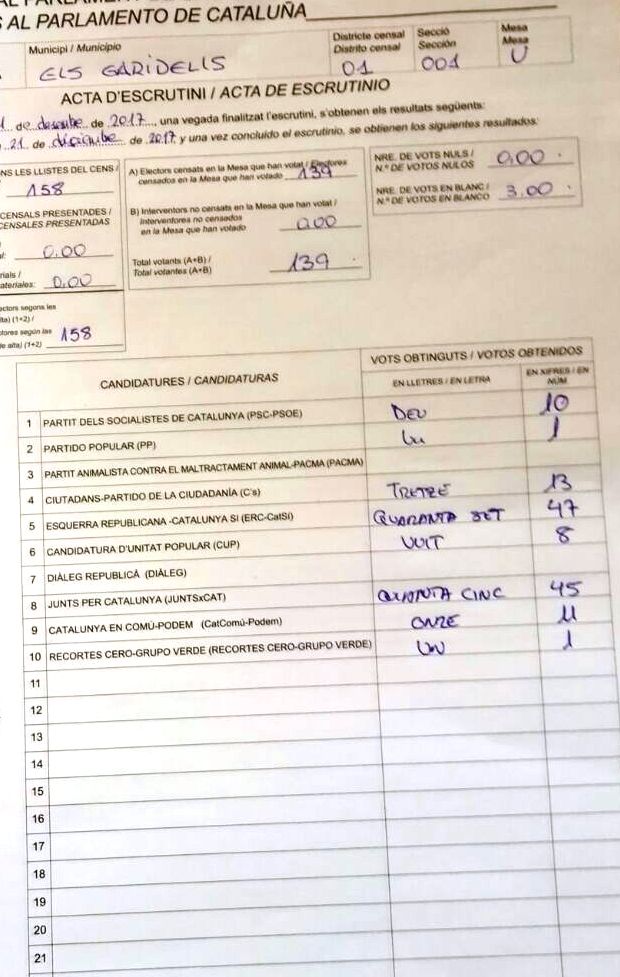 S AL PARLAMENTO DE CATALUÑA
Municipi / Municipio
Districte censal
Distrito censal
Secció
Sección
Mesa
Mesa
ELS GARIDELLS
01
001
U
ACTA D'ESCRUTINI / ACTA DE ESCRUTINIO
de desembre de 2017, una vegada finalitzat l'escrutini, s'obtenen els resultats següents:
21 de diciembre de 2017 y una vez concluido el escrutinio, se obtienen los siguientes resultados:
NS LES LLISTES DEL CENS /
158
CENSALS PRESENTADES /
CENSALES PRESENTADAS
0.00
rials /
ateriales: 0.00
ectors segons les
lta) (1+2) /
ctores según las
de alta) (1+2) 158
A) Electors censats en la Mesa que han votat / Electores
censados en la Mesa que han votado 139
B) Interventors no censats en la Mesa que han votat /
Interventores no censados
en la Mesa que han votado 000
Total votants (A+B) /
Total votantes (A+B) 139
NRE. DE VOTS NULS /
N.º DE VOTOS NULOS 0.00
NRE. DE VOTS EN BLANC /
N.º DE VOTOS EN BLANCO 3.00
CANDIDATURES / CANDIDATURAS
VOTS OBTINGUTS / VOTOS OBTENIDOS
EN LLETRES / EN LETRA
EN XIFRES / EN
NÚM
1 PARTIT DELS SOCIALISTES DE CATALUNYA (PSC-PSOE) DEU 10
2 PARTIDO POPULAR (PP) Un 1
3 PARTIT ANIMALISTA CONTRA EL MALTRACTAMENT ANIMAL-PACMA (PACMA)
4 CIUTADANS-PARTIDO DE LA CIUDADANÍA (C's) TRETZE 13
5 ESQUERRA REPUBLICANA -CATALUNYA SI (ERC-CatSí) QUARANTA SET 47
6 CANDIDATURA D'UNITAT POPULAR (CUP) VUIT 8
7 DIÀLEG REPUBLICÀ (DIÀLEG)
8 JUNTS PER CATALUNYA (JUNTSxCAT) CINC 45
9 CATALUNYA EN COMÚ-PODEM (CatComú-Podem) ONZE 11
10 RECORTES CERO-GRUPO VERDE (RECORTES CERO-GRUPO VERDE) UN 1
11
12
13
14
15
16
17
18
19
20
21